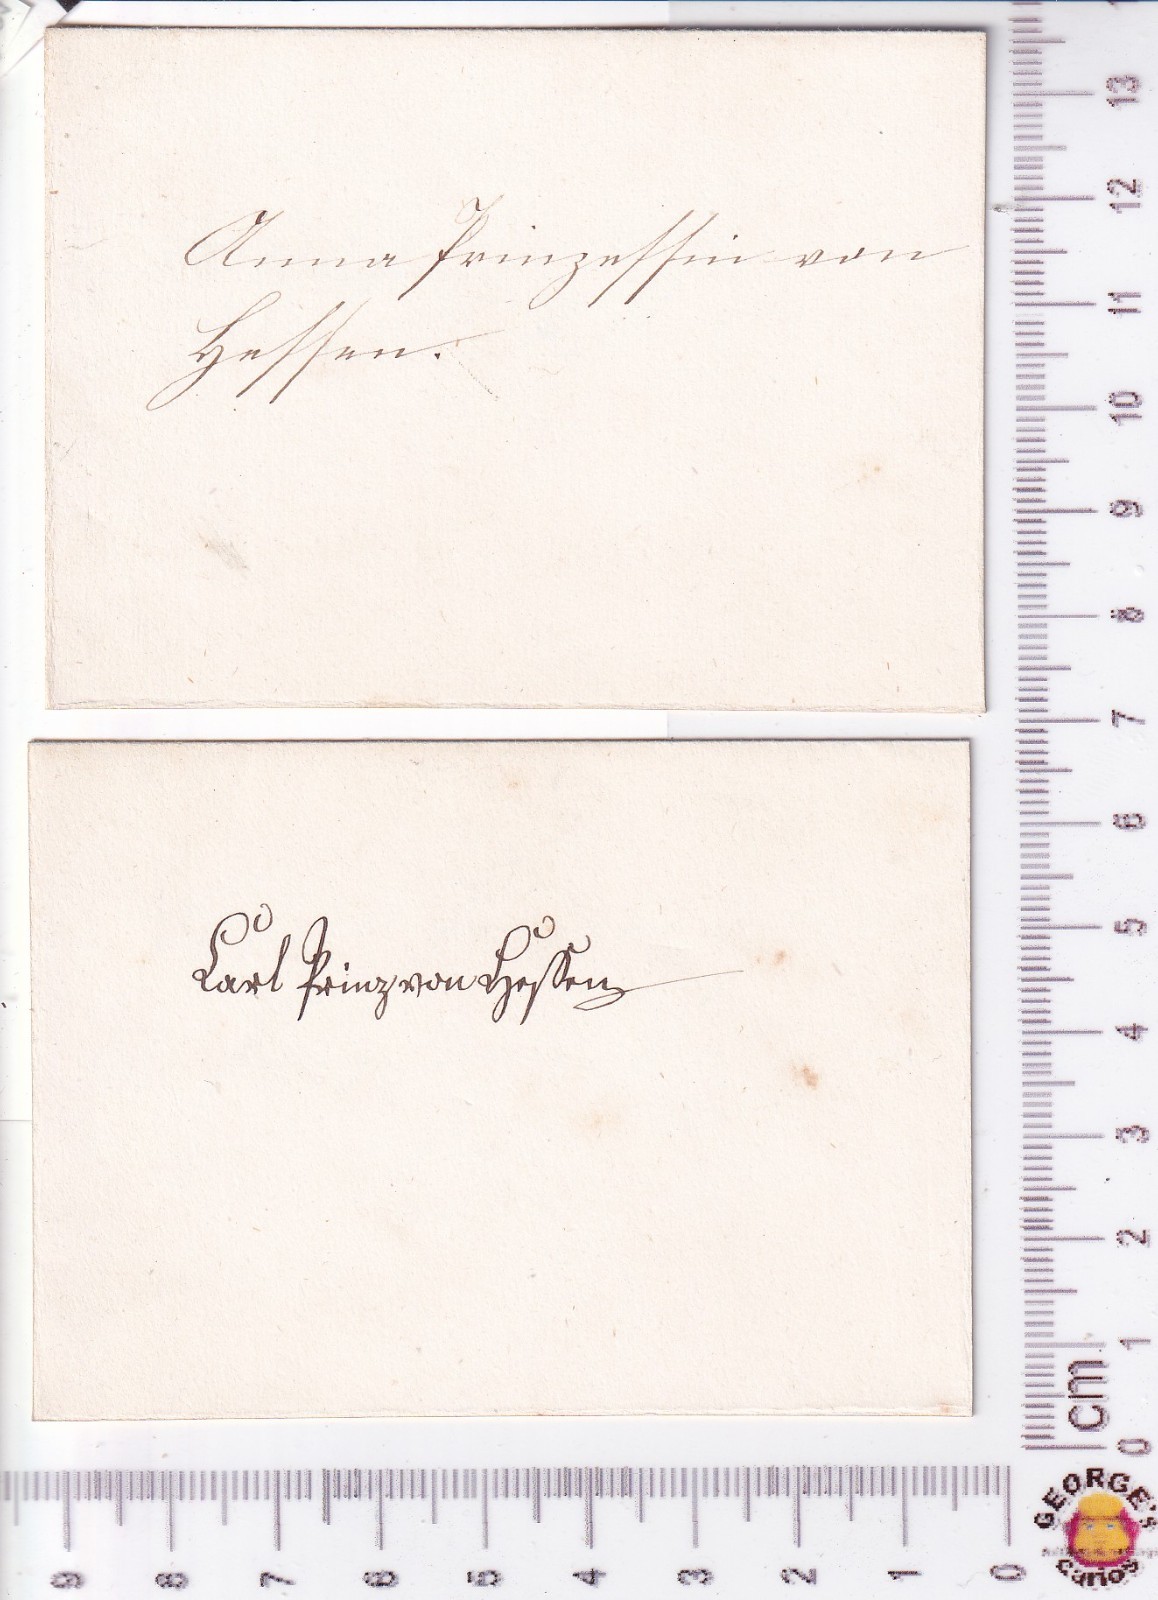 Anna Prinzessin von
Hessen.
Carl Prinz von Hessen
13
12
11
10
9
8
7
6
5
4
3
2
1
cm
0
9
8
7
6
5
4
3
2
1
0
GEORGE's